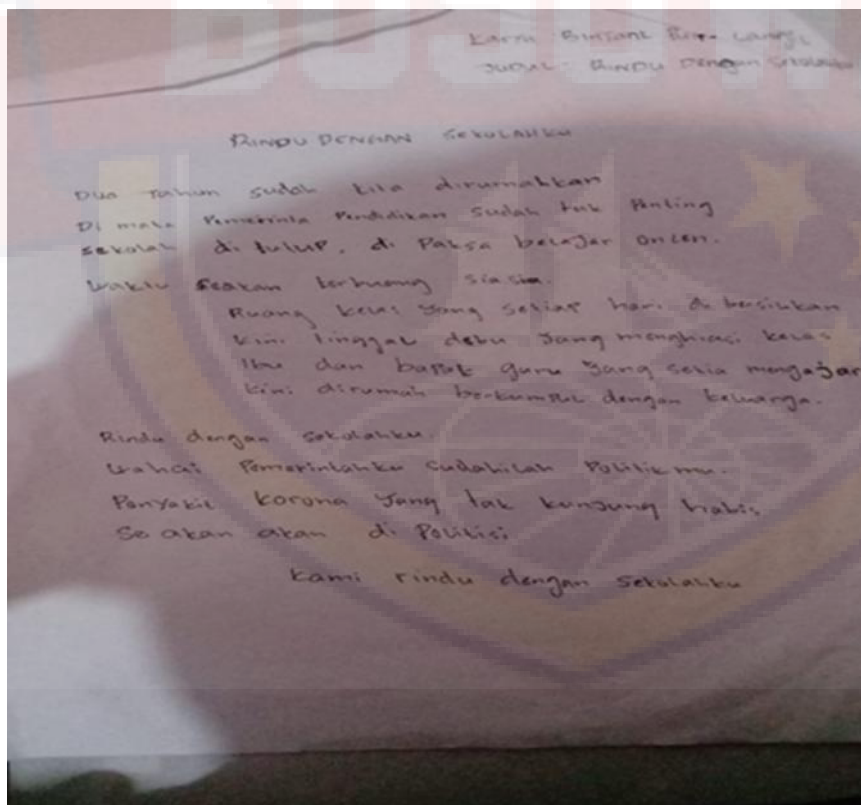 Karya Bintang
JUDUL : RINDU Dengan Sekolahku
RINDU DENGAN SEKOLAHKU
Dua tahun sudah kita dirumahkan
Di mata Pemerinta Pendidikan sudah tak Penting
sekolah di tutup, di Paksa belajar onlen.
waktu seakan terbuang sia sia.
Ruang kelas yang setiap hari di bersihkan
Kini tinggal debu yang menghiasi kelas
Ibu dan bapak guru yang setia mengajar
Kini dirumah berkumpul dengan keluarga.
Rindu dengan sekolahku.
wahai Pemerintahku sudahilah Politikmu.
Penyakit korona yang tak kunjung habis
Se akan akan di Politisi
Kami rindu dengan sekolahku